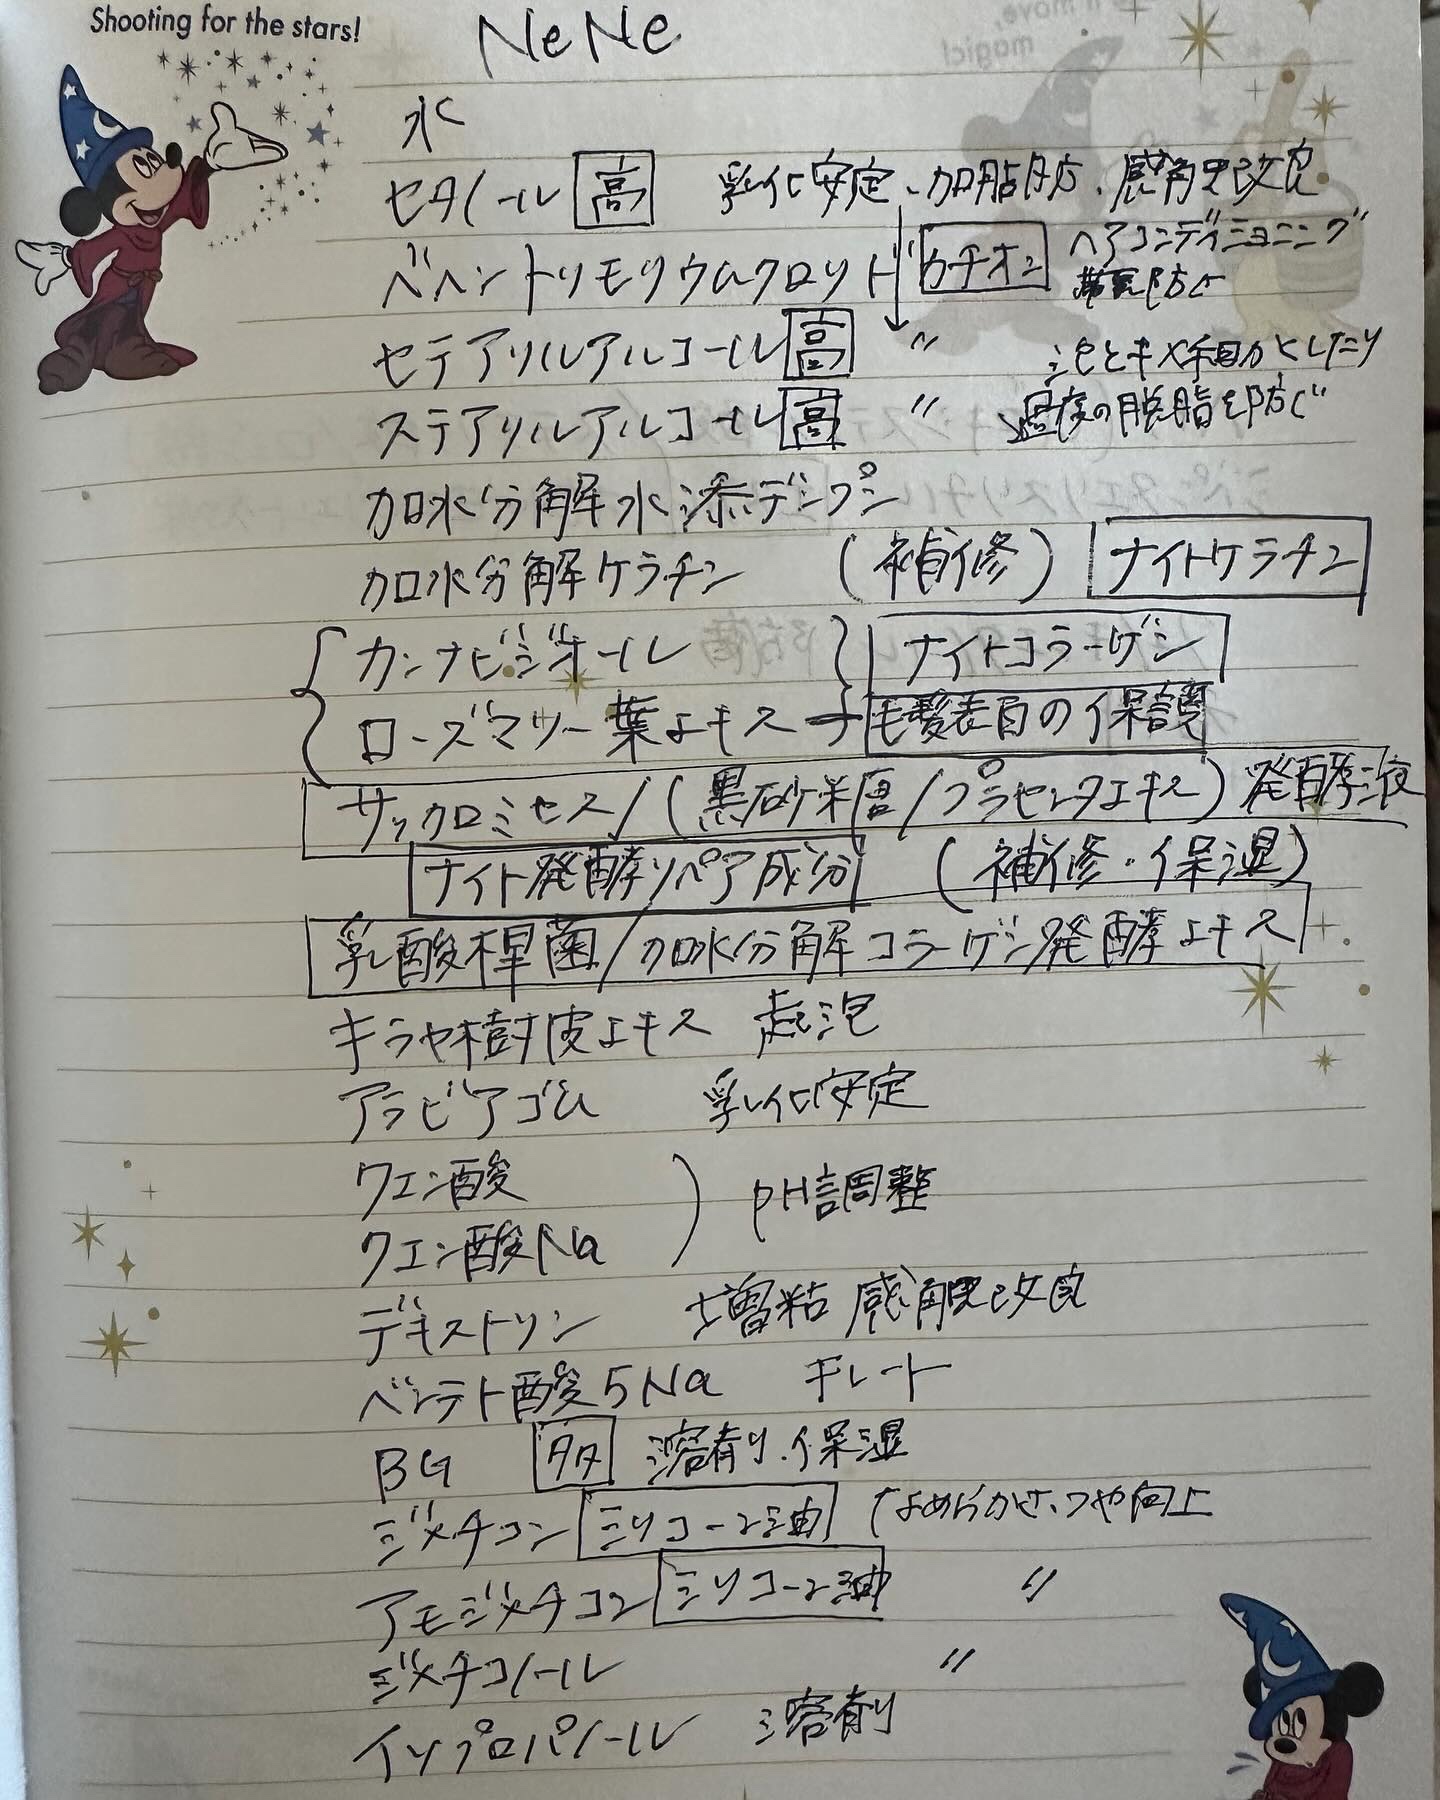 Shooting for the stars!
NeNe
水
セタノール 高 乳化安定、加脂肪、感触改良
ベヘントリモリウムクロリド カチオン ヘアコンディショニング
帯電防止
セテアリルアルコール 高 〃 泡をキメ細かくしたり
ステアリルアルコール 高 〃 過度の脱脂を防ぐ
加水分解水添デンプン
加水分解ケラチン (補修) ナイトケラチン
カンナビジオール ナイトコラーゲン
ローズマリー葉エキス → 毛髪表面の保護
サッカロミセス/(黒砂糖/プラセンタエキス)発酵液
ナイト発酵リペア成分 (補修・保湿)
乳酸桿菌/加水分解コラーゲン発酵エキス
キラヤ樹皮エキス 起泡
アラビアゴム 乳化安定
クエン酸
クエン酸Na pH調整
デキストリン 増粘 感触改良
ペンテト酸5Na キレート
BG 多 溶剤、保湿
ジメチコン シリコーン油 なめらかさ、つや向上
アモジメチコン シリコーン油 〃
ジメチコノール 〃
イソプロパノール 溶剤